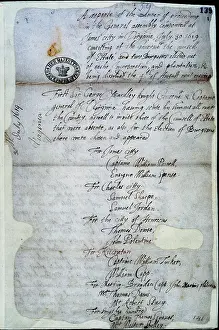 A reporte of the manner of proceeding
in the General assembly convented at
James citty in Virginia, July 30. 1619
consisting of the Governor, the counsell
of Estate and two Burgesses elected out
of eache and plantation, &
being dissolved the 4th of August next
139
July 1619
Virginia
First Sir George Yeardley knight Governor & Captaine
general of Virginia, having sente his sumons all over
the Country, as well to invite those of the Counsell of Estate
that were absente, as also for the election of Burgesses
there were chosen and appeared
For James citty
Captaine William Powell
Ensigne William Spense
For Charles citty
Samuel Sharpe
Samuel Jordan
For the citty of Henricus
Thomas Dowse
John Polentine
For Kiccowtan
Captaine William Tucker
William Capp
For Martin Brandon Capt John Martins
Mr Thomas Davis
Mr Robert Stacy
Captain Thomas Graves
Mr Walter